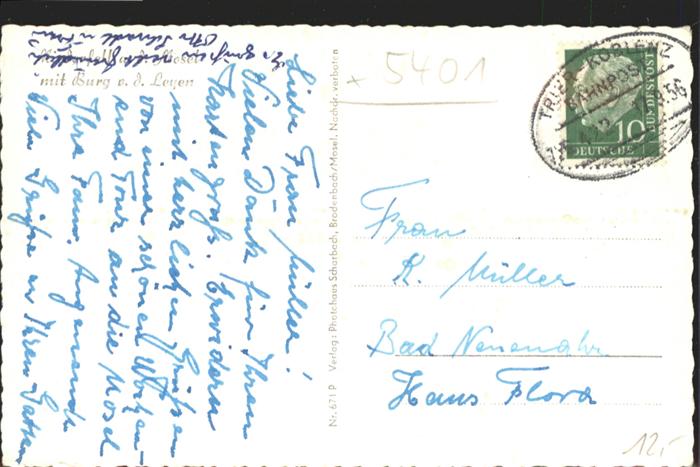 mit Burg v. d. Leyen
Liebe Frau Müller!
Vielen Dank für Ihren
Kartengruß. Erwidern
mit herzlichen Grüßen
von einer schönen Wochen-
end Tour an die Mosel
Ihre Fam.
Viele Grüße an Ihren Gatten
Nr. 671 P Verlag: Photohaus Scharbach, Brodenbach/Mosel. Nachdr. verboten
x 5401
TRIER - KOBLENZ
BAHNPOST
10
DEUTSCHE
BUNDESPOST
Frau
K. Müller
Bad Neuenahr
Haus Flora
12,-